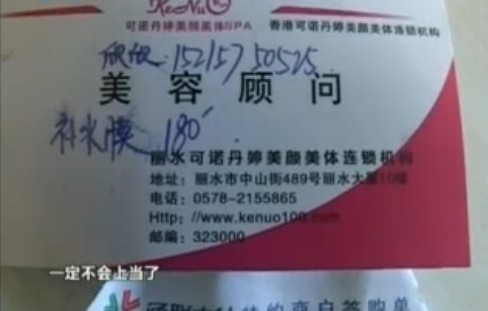 KeNuo
可诺丹婷美颜美体SPA
香港可诺丹婷美颜美体连锁机构
欣欣 15215750525
美容顾问
补水膜 180
丽水可诺丹婷美颜美体连锁机构
地址：丽水市中山街489号丽水大厦10楼
电话：0578-2155865
Http://www.kenuo100.com
邮编：323000
一定不会上当了
商户签购单